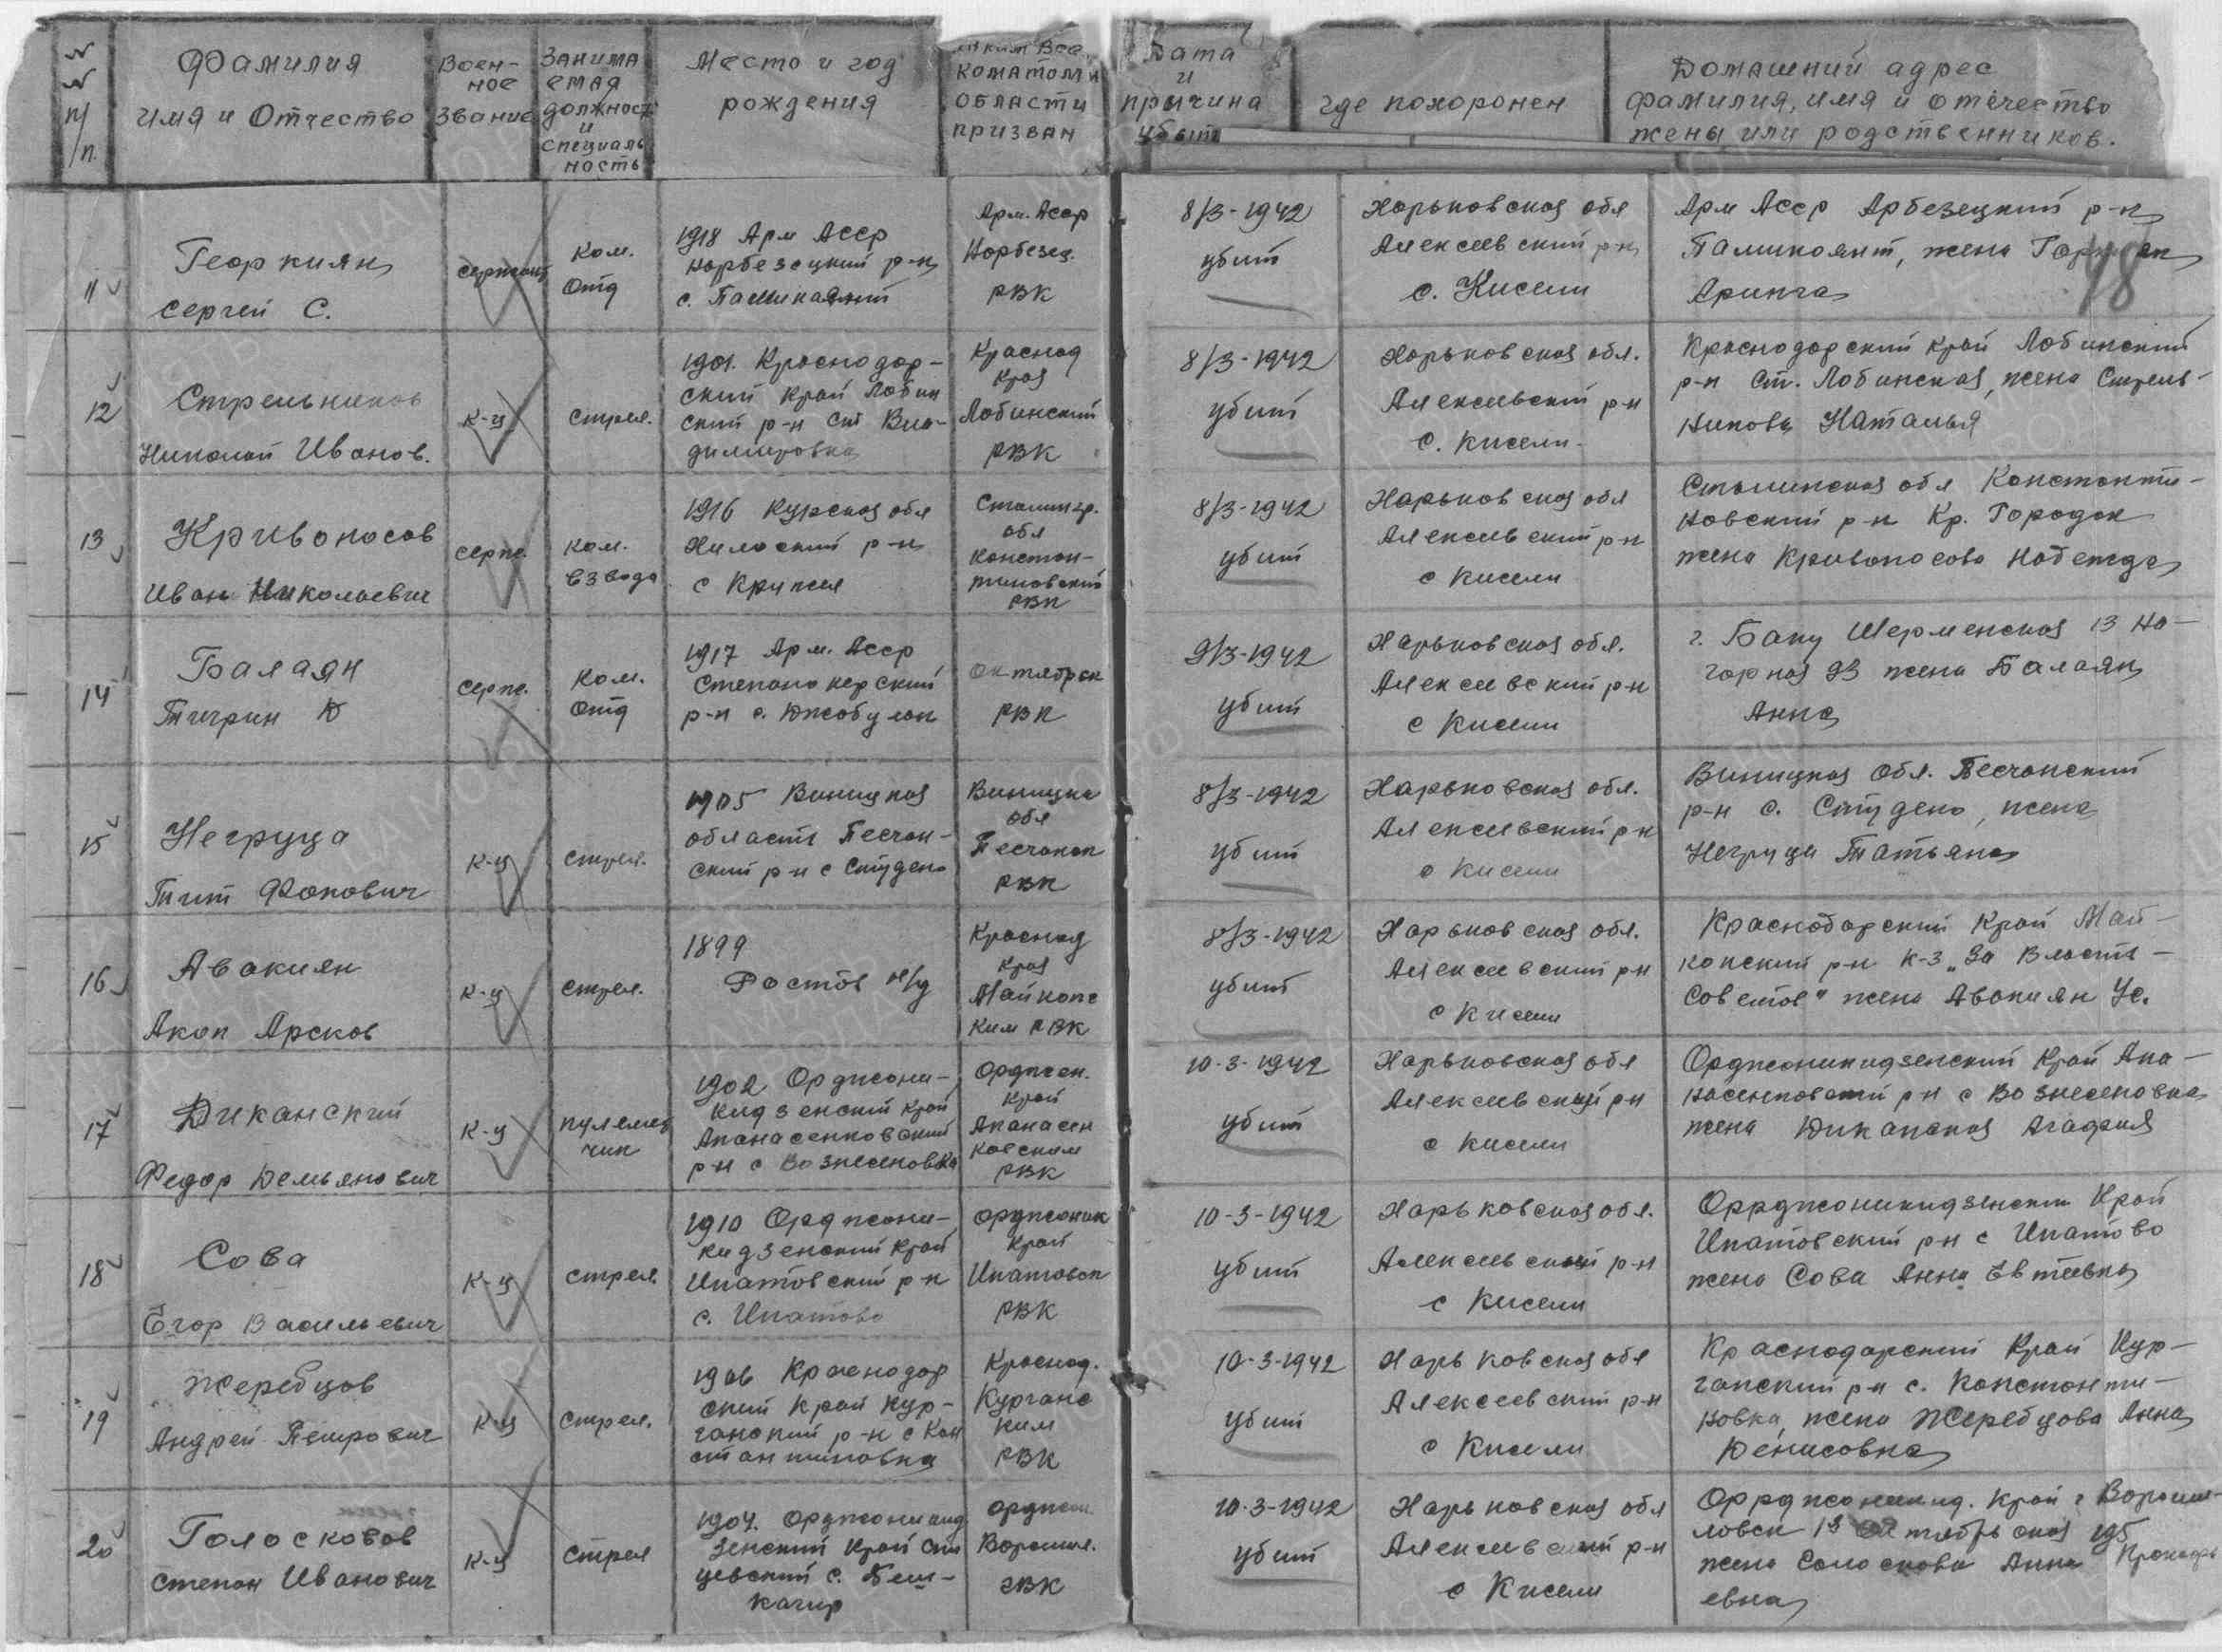 № № п/п.
Фамилия
имя и Отчество
Воен-
ное
звание
Занима
емая
должност
и
специаль
ность
Место и год
рождения
каким Вое
коматом и
области
призван
Дата
и
причина
убыт
где похоронен
Домашний адрес
фамилия, имя и отчество
жены или родственников.
48
11
Георкиян
Сергей С.
сержант
Ком.
Отд
1918 Арм Асср
Норбезецкий р-н
с.
Арм. Асср
Норбезец.
РВК
8/3-1942
убит
Харьковская обл
Алексеевский р-н
с. Кисели
Арм Асср Арбезецкий р-н
жена
12
Стрельников
Николай Иванов.
к-ц
стрел.
1901. Краснодар-
ский край Лабин
ский р-н ст Вла-
димировка
Краснод
края
Лабинский
РВК
8/3-1942
убит
Харьковская обл.
Алексеевский р-н
с. Кисели.
Краснодарский край Лабинский
р-н ст. Лабинская, жена Стрель-
никова Наталья
13
Кривоносов
Иван Николаевич
серж.
ком.
взвода
1916 Курская обл
р-н
с Крупец
Сталингр.
обл
Констан-
тиновский
РВК
8/3-1942
убит
Харьковская обл
Алексеевский р-н
с Кисели
Сталинская обл Константи-
новский р-н Кр. Городок
жена Кривоносова Надежда
14
Балаян
Тигран Д
серж.
Ком.
Отд
1917 Арм. Асср
Степанокерский
р-н с.
Октябрск
РВК
9/3-1942
убит
Харьковская обл.
Алексеевский р-н
с Кисели
г. Баку 13 На-
горная 93 жена Балаян
Анна
15
Негруца
Тит Фокович
к-ц
стрел.
1905 Виницкая
область Песчан-
ский р-н с Студена
Виницка
обл
Песчанск
РВК
8/3-1942
убит
Харьковская обл.
Алексеевский р-н
с Кисели
Виницкая Обл. Песчанский
р-н с. Студена, жена
Негруца Татьяна
16
Авакиян
Акоп Арсков
к-ц
стрел.
1899
Ростов н/д
Краснод
края
Майкопс
ким РВК
8/3-1942
убит
Харьковская обл.
Алексеевский р-н
с Кисели
Краснодарский край Май-
копский р-н к-з „За Власть-
Советов" жена Авакиян Ус.
17
Диканский
Федор Демьянович
к-ц
пулемет
чик
1902 Орджони-
кидзенский край
Апанасенковский
р-н с Вознесеновка
Орджен.
край
Апанасен
ковским
РВК
10-3-1942
убит
Харьковская обл
Алексеевский р-н
с Кисели
Орджоникидзенский край Апа-
насенковский р-н с Вознесеновка
жена Диканская Агафия
18
Сова
Егор Васильевич
к-ц
стрел.
1910 Орджони-
кидзенский край
Ипатовский р-н
с. Ипатово
Орджоник
край
Ипатовск
РВК
10-3-1942
убит
Харьковская обл.
Алексеевский р-н
с Кисели
Оррджоникидзенский Край
Ипатовский р-н с Ипатово
жена Сова Анна Евтеевна
19
Жеребцов
Андрей Петрович
к-ц
стрел.
1906 Краснодар
ский край Кур-
ганский р-н с Кон
стантиновка
Краснод.
Курганс
ким
РВК
10-3-1942
убит
Харьковская обл
Алексеевский р-н
с Кисели
Краснодарский край Кур-
ганский р-н с. Константи-
новка, жена Жеребцова Анна
Денисовна
20
Голоскоков
Степан Иванович
к-ц
стрел
1904. Орджоникид
зенский край
с. Беш-
пагир
Орджон.
Ворошил.
РВК
10-3-1942
убит
Харьковская обл
Алексеевский р-н
с Кисели
Орджоникид. край г Вороши-
ловск 1я Октябрьская 195
жена Анна Прокофь
евна